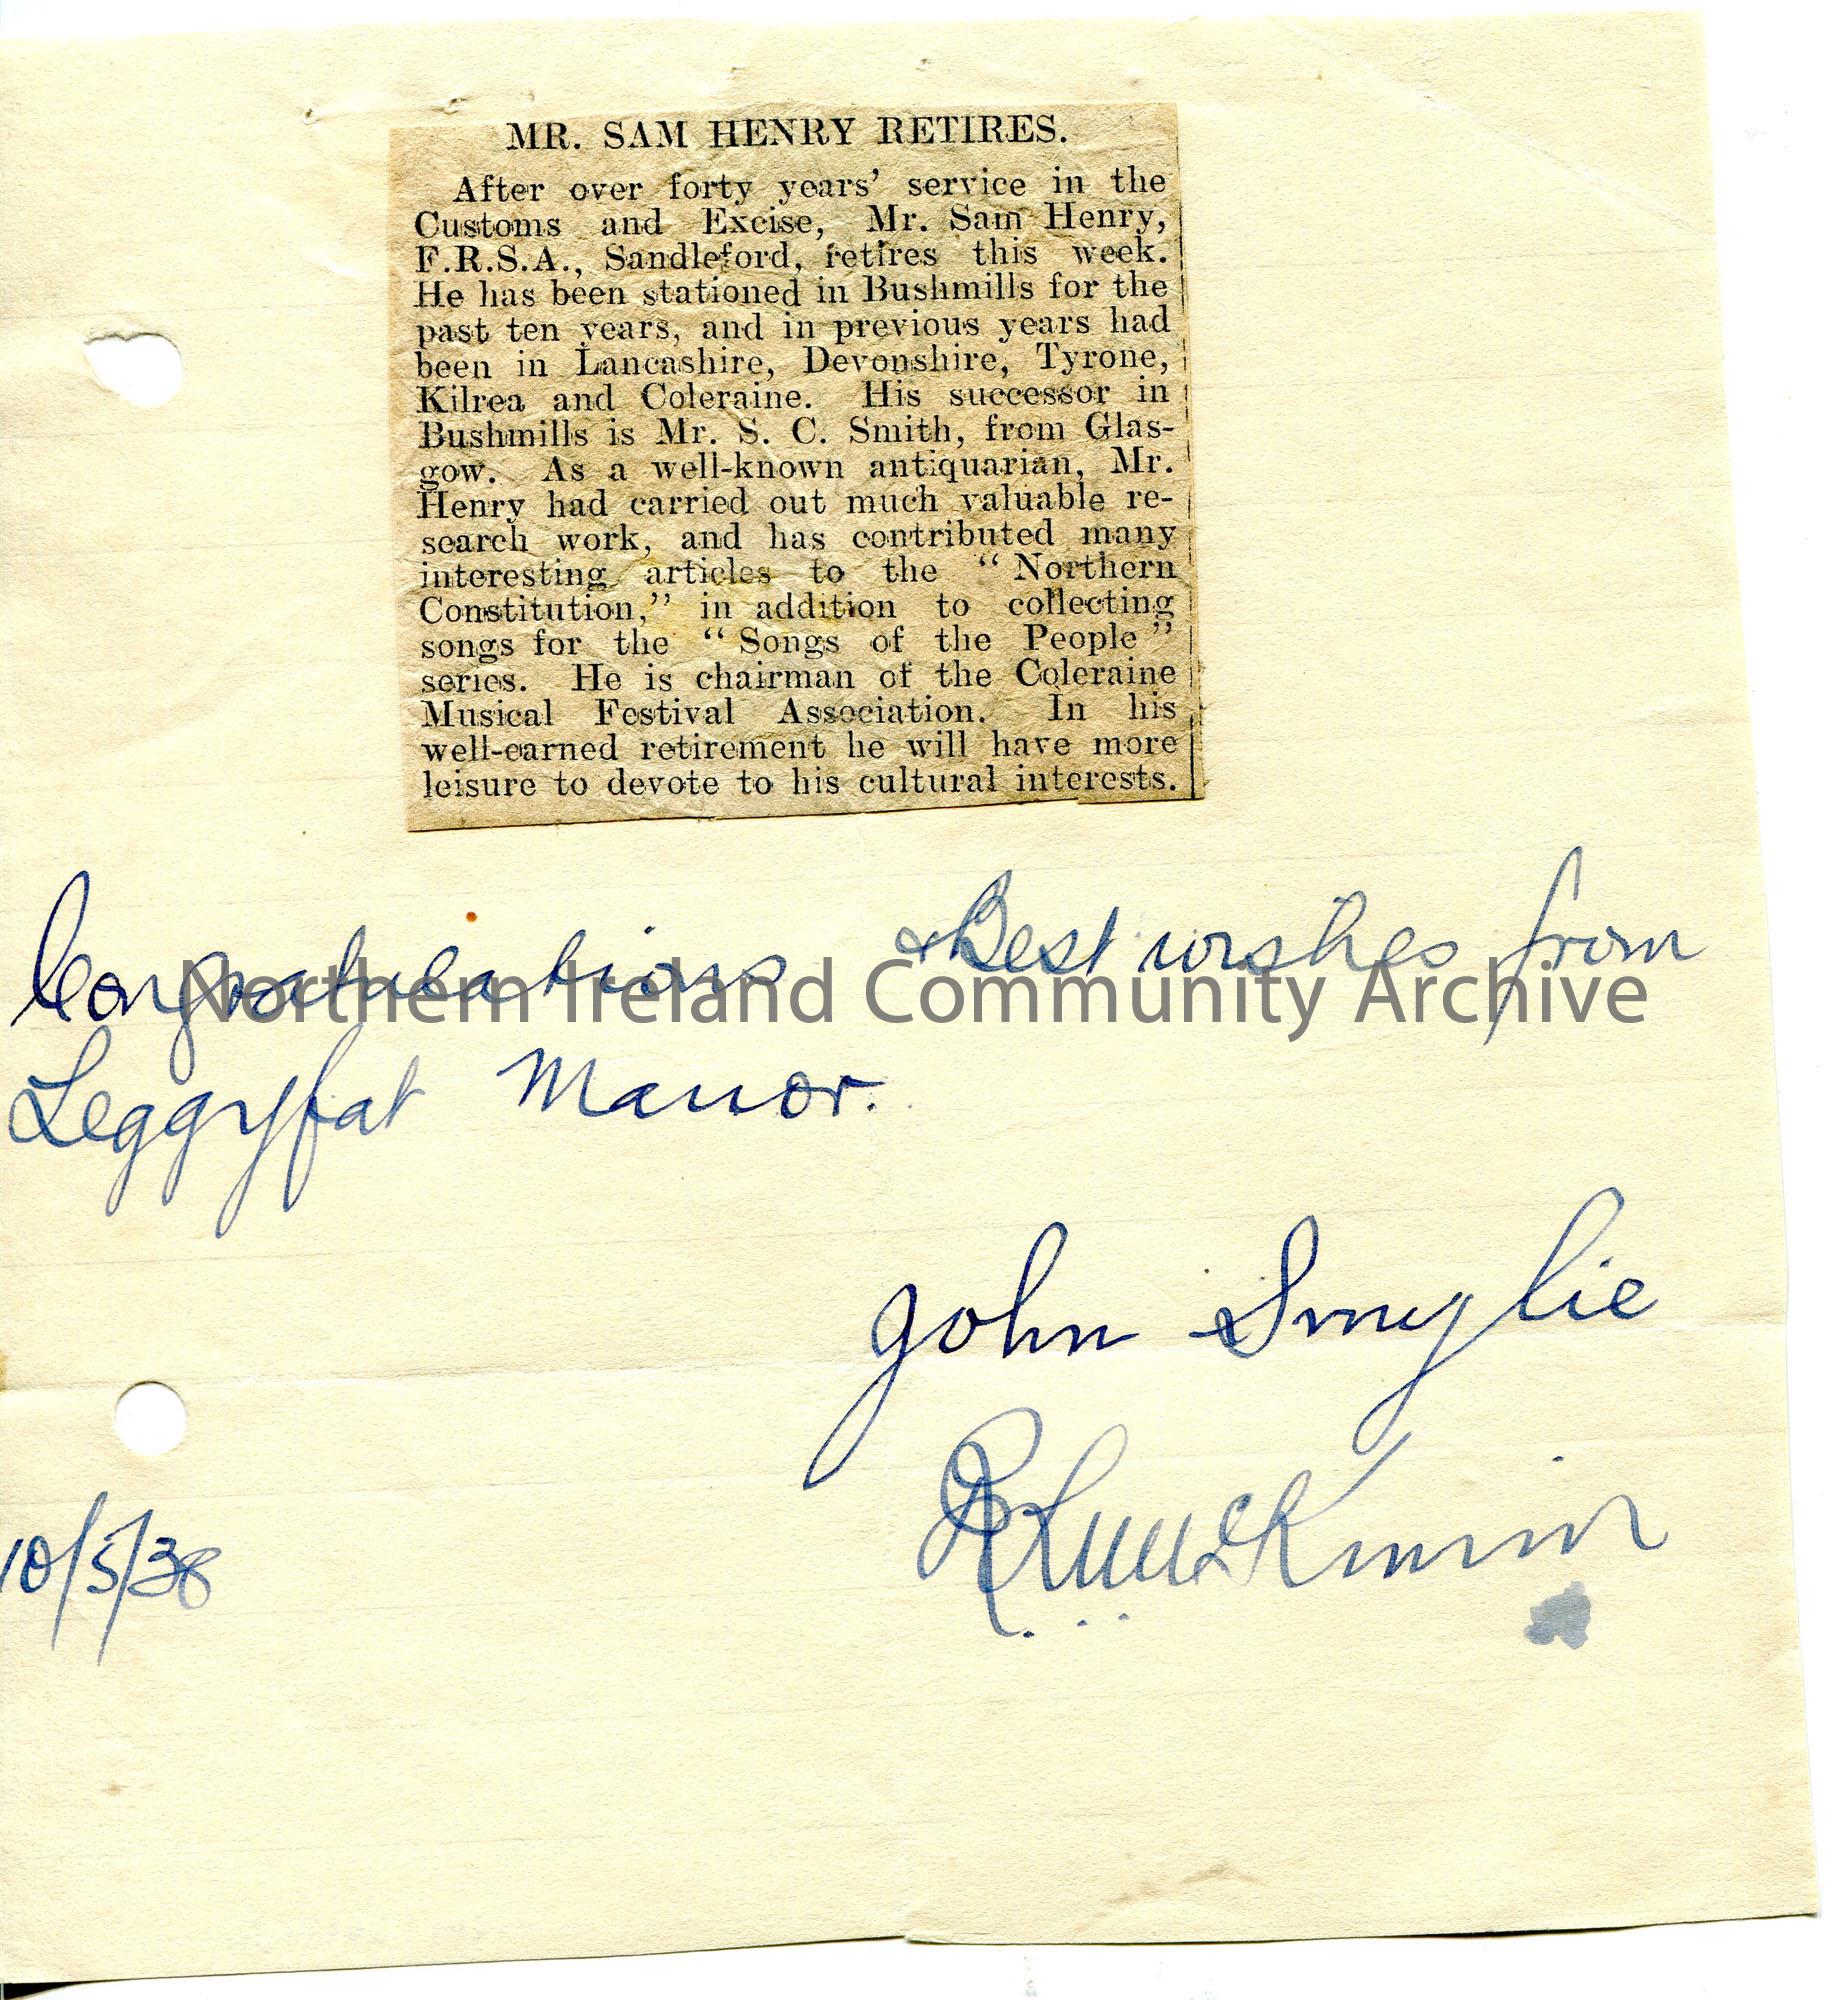 MR. SAM HENRY RETIRES.
After over forty years' service in the
Customs and Excise, Mr. Sam Henry,
F.R.S.A., Sandleford, retires this week.
He has been stationed in Bushmills for the
past ten years, and in previous years had
been in Lancashire, Devonshire, Tyrone,
Kilrea and Coleraine. His successor in
Bushmills is Mr. S. C. Smith, from Glas-
gow. As a well-known antiquarian, Mr.
Henry had carried out much valuable re-
search work, and has contributed many
interesting articles to the “Northern
Constitution,” in addition to collecting
songs for the “Songs of the People”
series. He is chairman of the Coleraine
Musical Festival Association. In his
well-earned retirement he will have more
leisure to devote to his cultural interests.
Congratulations & Best wishes from
Northern Ireland Community Archive
Leggyfat Manor.
John Smylie
10/5/38